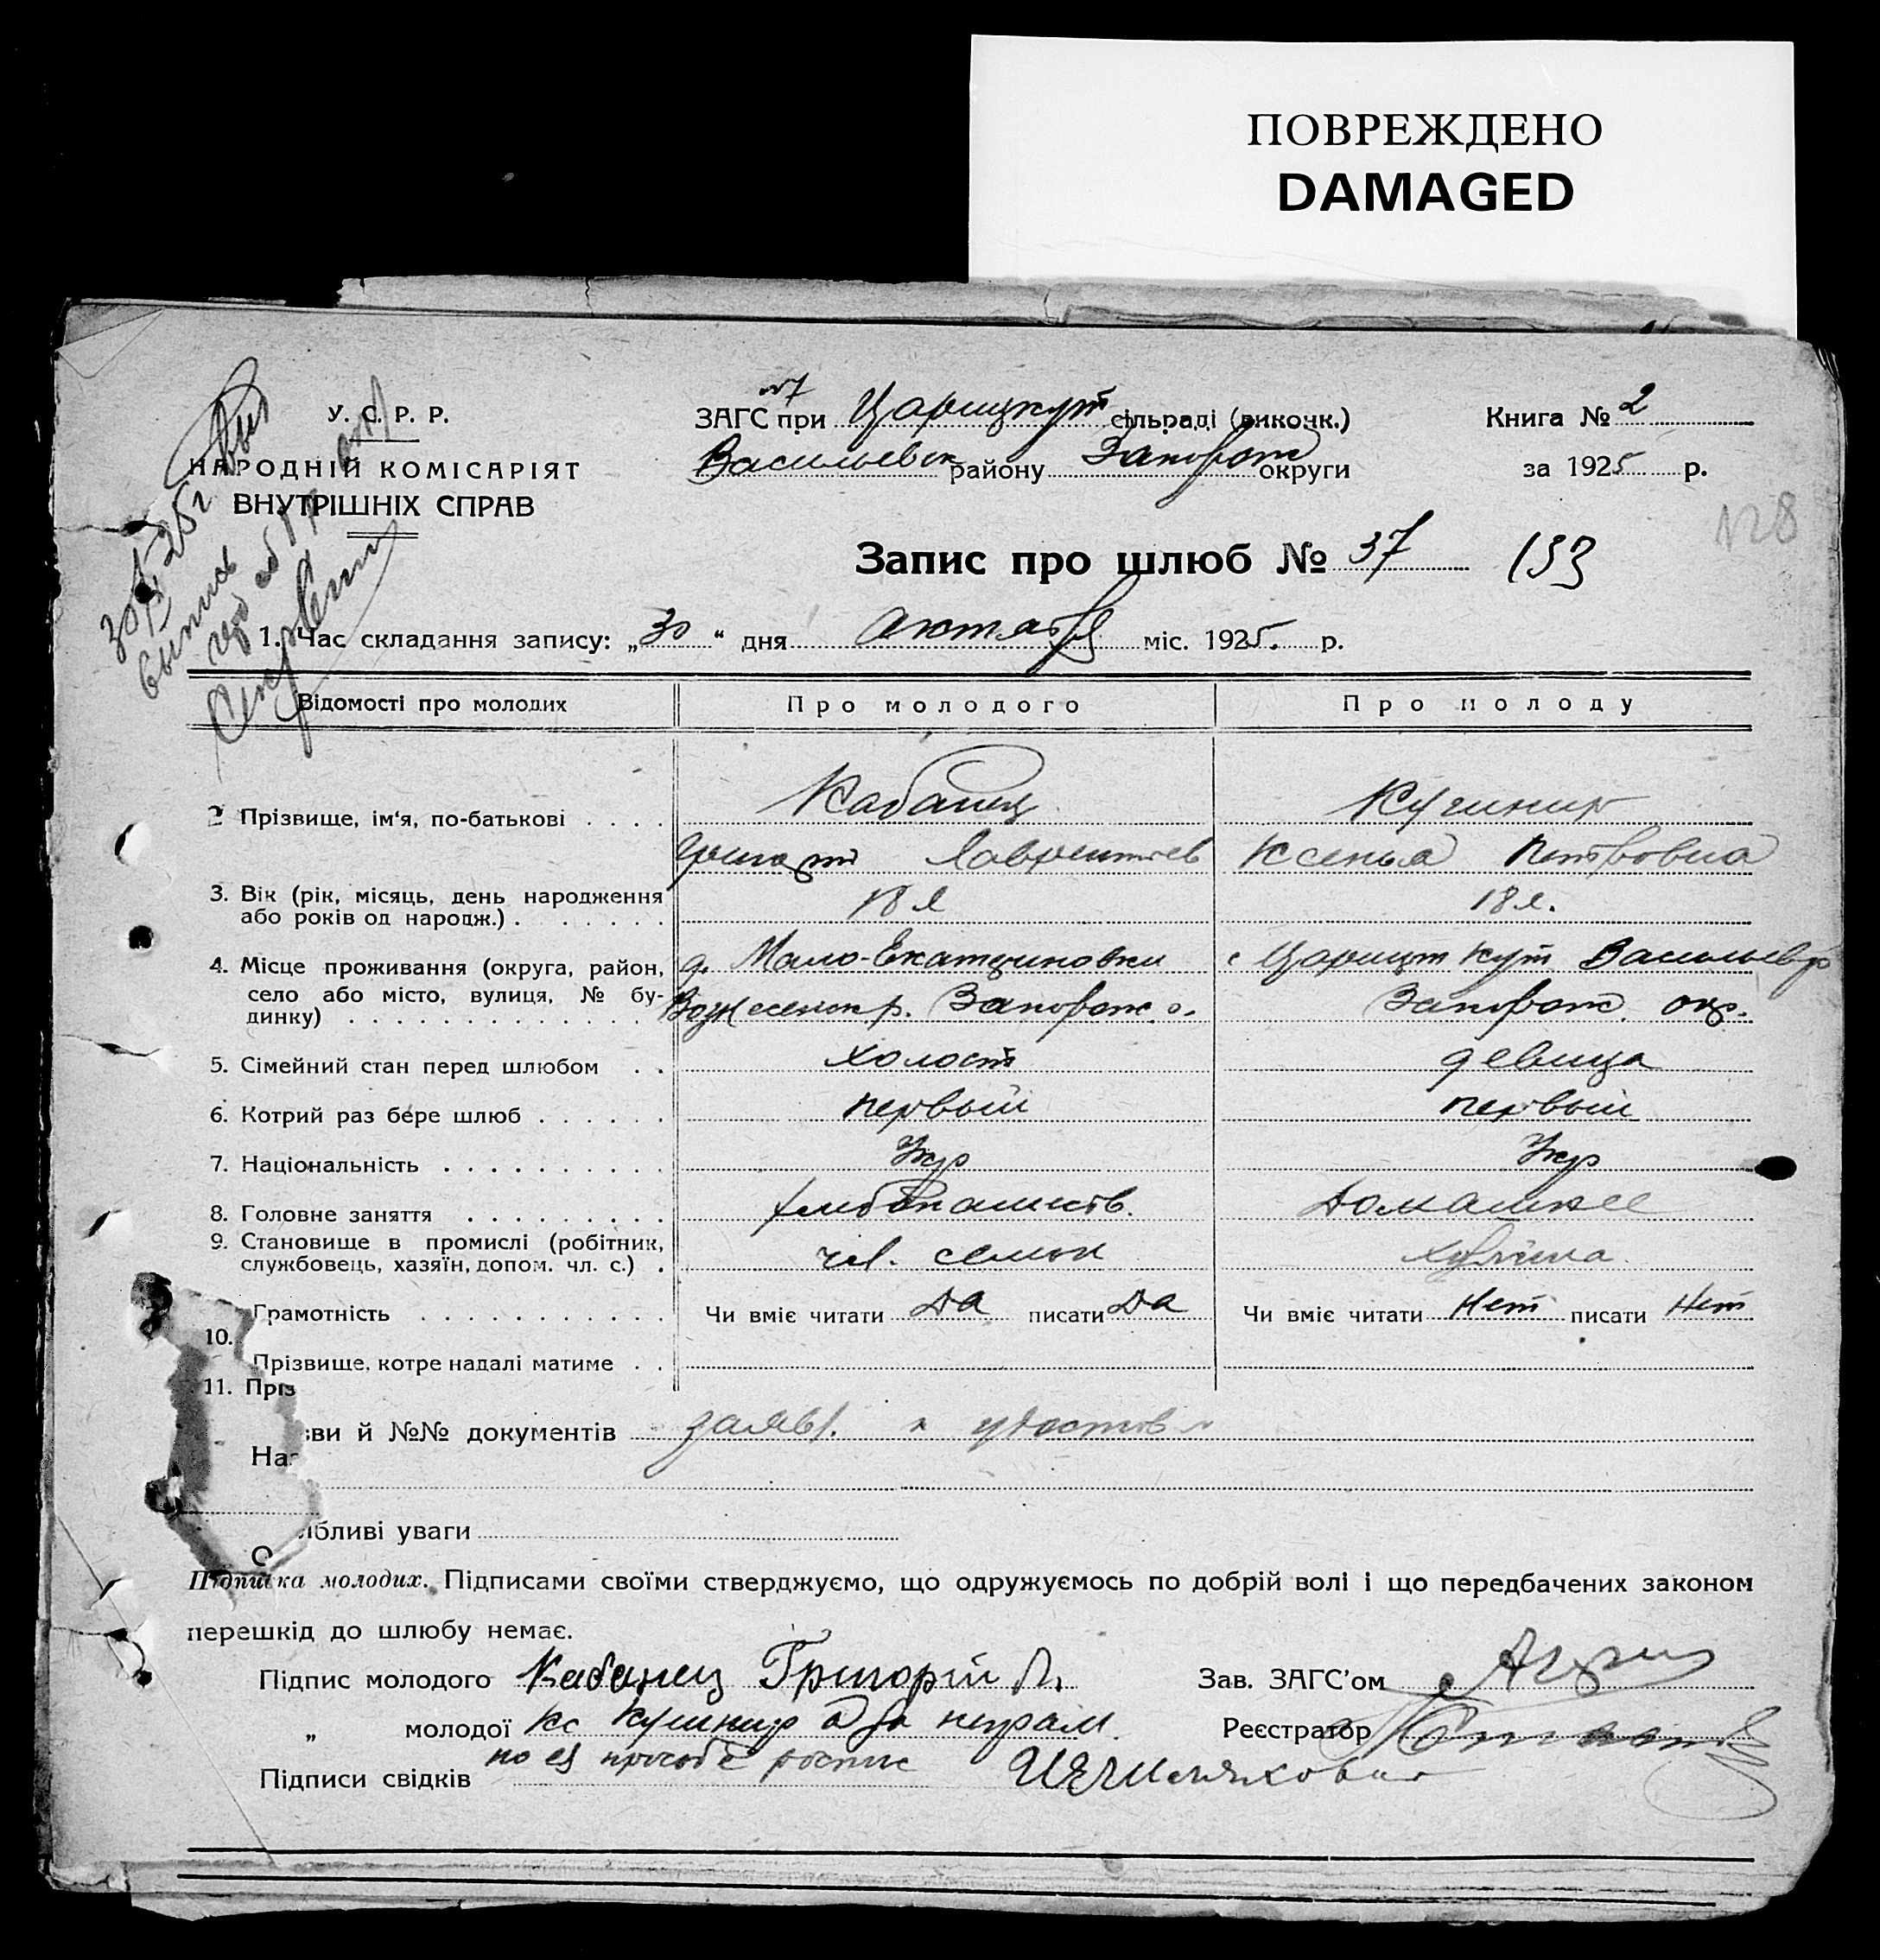 ПОВРЕЖДЕНО
DAMAGED
У. С. Р. Р.
НАРОДНІЙ КОМІСАРІЯТ
ВНУТРІШНІХ СПРАВ
ЗАГС при Царицкут сільраді (викочк.)
Васильевск району Запорож округи
Книга № 2
за 1925 р.
128
Запис про шлюб № 37 133
1. Час складання запису: „30“ дня октября міс. 1925. р.
Відомості про молодих Про молодого Про молоду
2 Прізвище, ім'я, по-батькові . . . . Кабанец Кушнир
Лаврентьев Ксенья Петровна
3. Вік (рік, місяць, день народження
або років од народж.) . . . . . . . 18 л 18 л.
4. Місце проживання (округа, район,
село або місто, вулиця, № бу-
динку) . . . . . . . . . . . . .
д. Мало-Екатериновки с Царицын Кут Васильевр
Вознесенск р. Запорож о. Запорож. окр.
5. Сімейний стан перед шлюбом . . холост девица
6. Котрий раз бере шлюб . . . . . . первый первый
7. Національність . . . . . . . . . . Укр Укр
8. Головне заняття . . . . . . . . . хлебопашеств. Домашнее
9. Становище в промислі (робітник,
службовець, хазяїн, допом. чл. с.) . чл. семьи
Грамотність . . . . . . . . . . . Чи вміє читати Да писати Да Чи вміє читати Нет писати Нет
10.
Прізвище, котре надалі матиме . .
11. Пріз
зви й №№ документів заявл. и удостов
Наз
ібливі уваги
О
Підписка молодих. Підписами своїми стверджуємо, що одружуємось по добрій волі і що передбачених законом
перешкід до шлюбу немає.
Підпис молодого Кабанец Григорій Л. Зав. ЗАГС'ом
„ молодої Кс Кушнир а за неграм. Реєстратор
по ея просьбе роспис
Підписи свідків